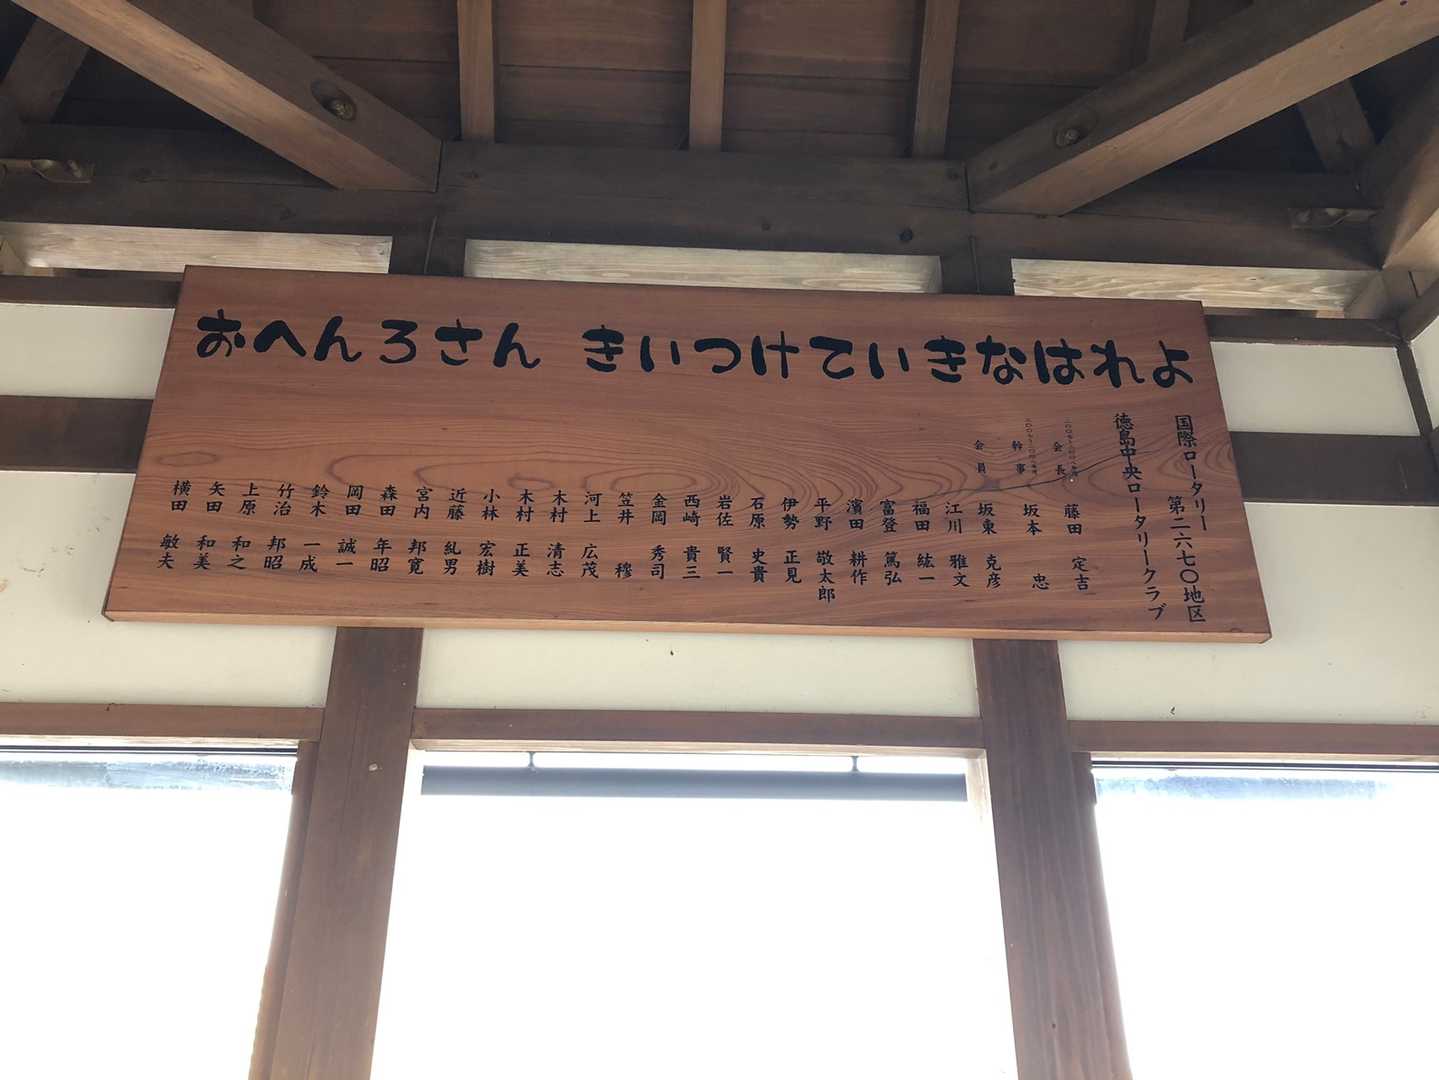 おへんろさん きいつけていきなはれよ
国際ロータリー 第二六七〇地区
徳島中央ロータリークラブ
会長 藤田 定吉
幹事 坂本 忠
会員 坂東 克彦
江川 雅文
福田 紘一
富登 篤弘
濱田 耕作
平野 敬太郎
伊勢 正見
石原 史貴
岩佐 賢一
西崎 貴三
金岡 秀司
笠井 穆
河上 広茂
木村 清志
木村 正美
小林 宏樹
近藤 紘男
宮内 邦寛
森田 年昭
岡田 誠一
鈴木 一成
竹治 邦昭
上原 和之
矢田 和美
横田 敏夫